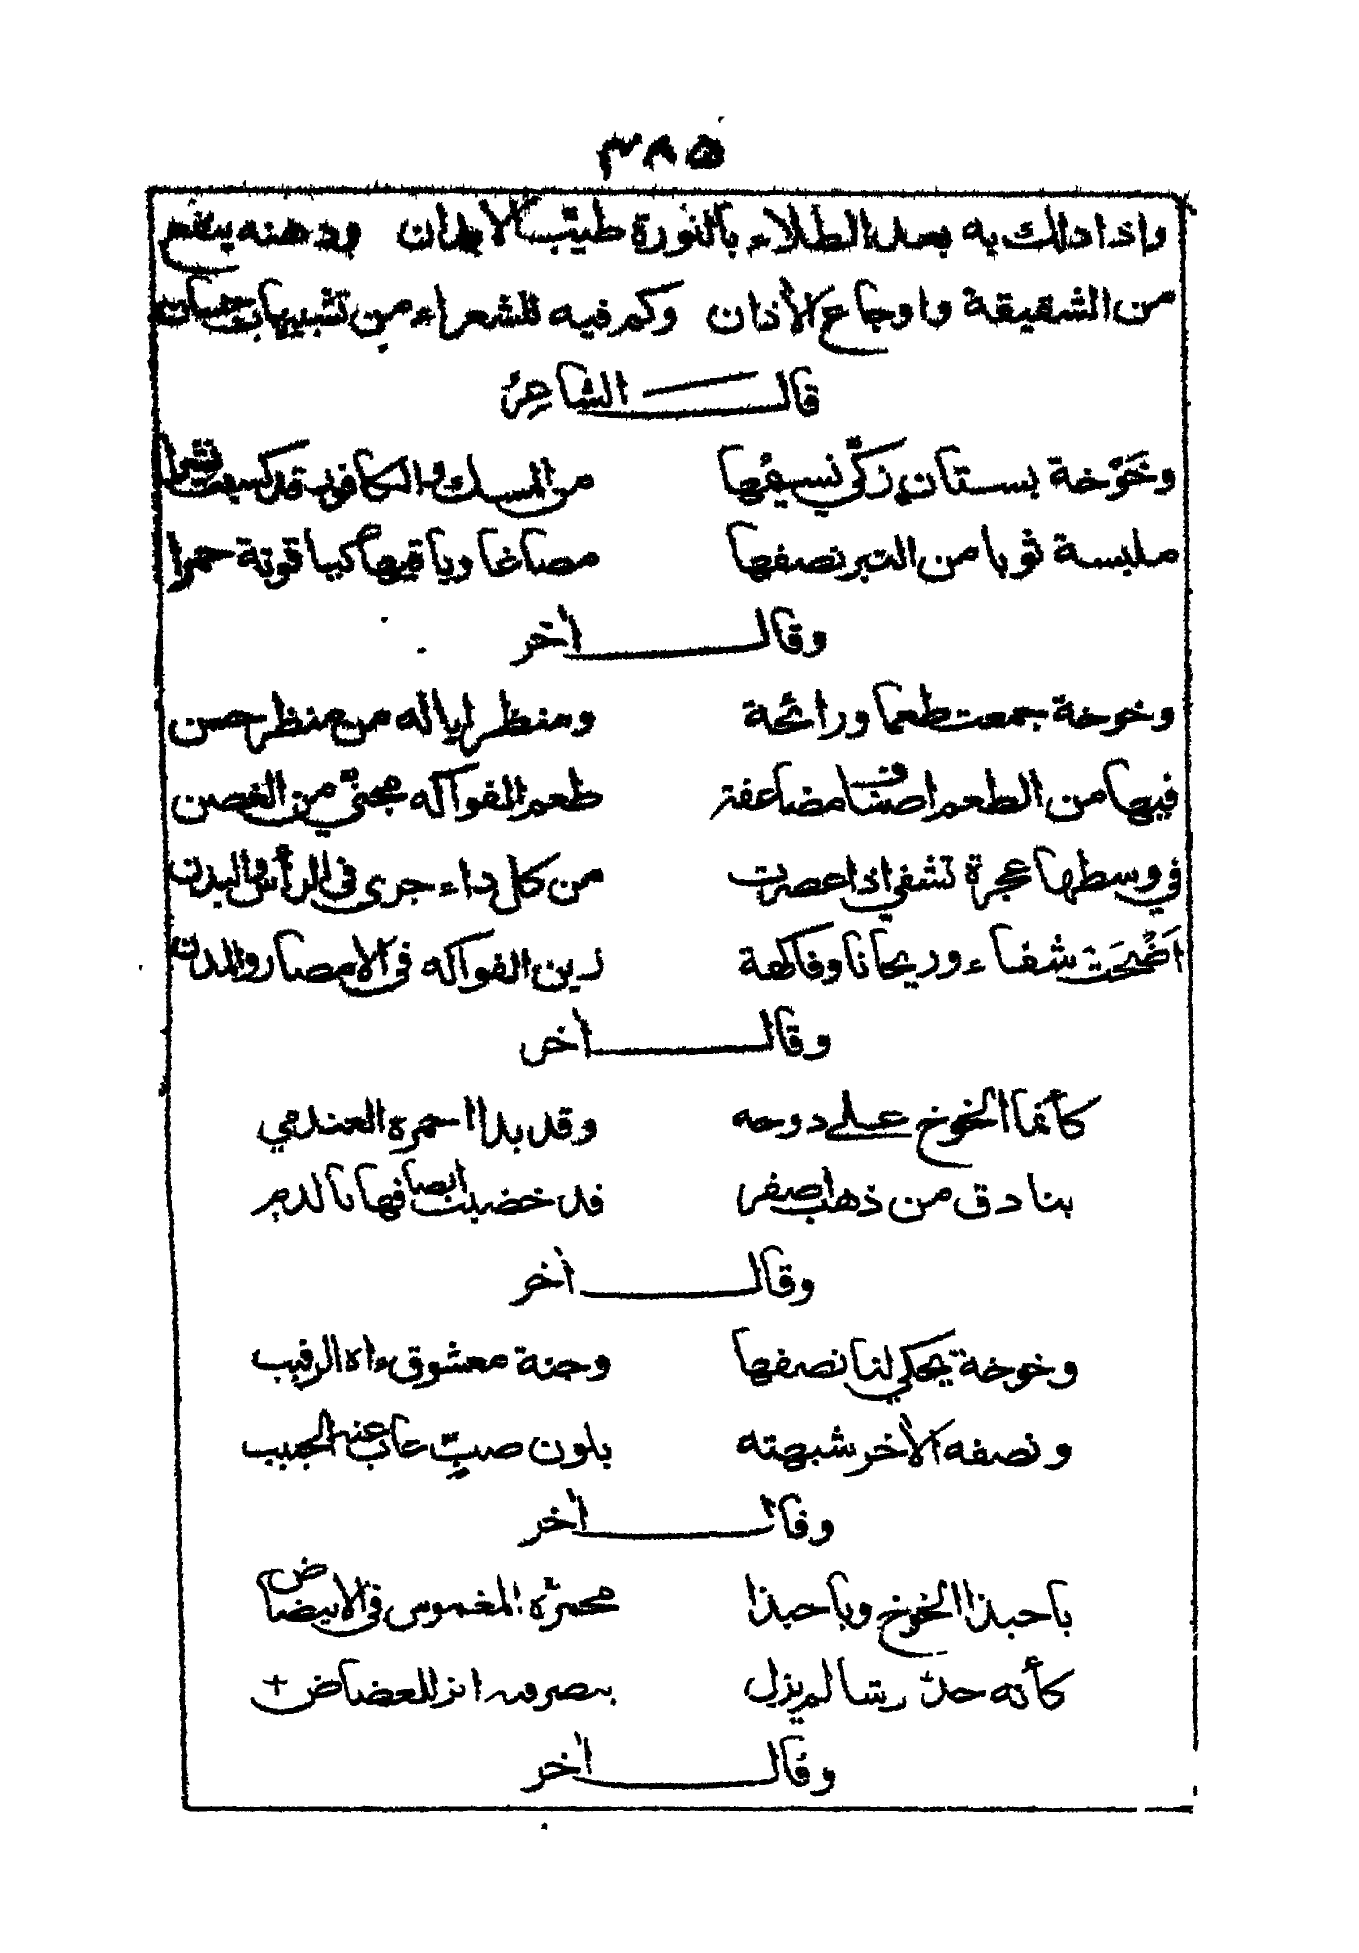 ٣٨٥
واذا دلك به بعد الطلاء بالنورة طيّب الابدان ودهنه ينفع
من الشقيقة واوجاع الأذان وكم فيه للشعراء من تشبيهات حسان
قال الشاعرُ
وخَوْخة بستانٍ زكّي نسيمُها من المسك والكافور قد كسبت نشرا
ملبسة ثوبا من التبر نصفها مصاغا وباقيها كياقوتة حمرا
وقال اخر
وخوخة جمعت طعما ورائحة ومنظرا ياله من منظر حسن
فيها من الطعم اصناف مضاعفة طعم الفواكه مجنيّ من الغصن
في وسطها عجرة تشفي اذا عصرت من كل داء جرى في الرأس والبدن
اضْحَت شفاء وريحانا وفاكهة زين الفواكه في الامصار والمدن
وقال اخر
كأنما الخوخ على دوحه وقد بدا احمره العندمي
بنادق من ذهب اصفر قد خضبت انصافها بالدم
وقال اخر
وخوخة يحكي لنا نصفها وجنة معشوق رآه الرقيب
ونصفه الاخر شبهته بلون صبٍّ غاب عنه الحبيب
وقال اخر
يا حبذا الخوخ ويا حبذا محمرّه المغموس في الابيضاض
كأنه خدّ رشا لم يزل
وقال اخر